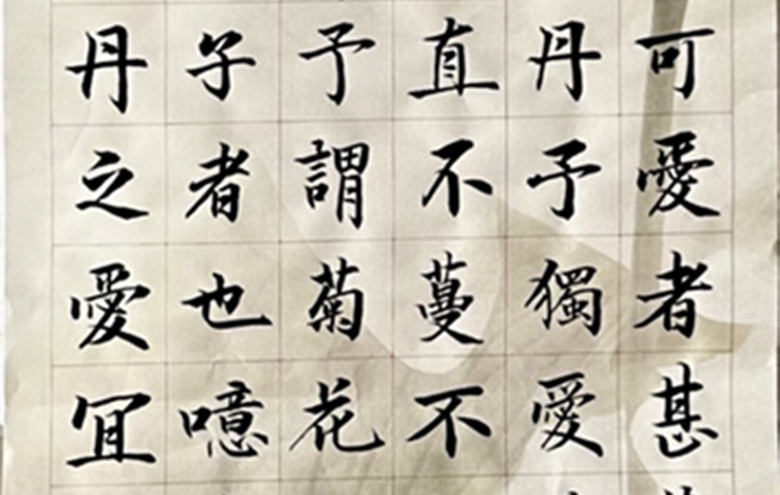 可愛者甚
丹予獨愛
直不蔓不
予謂菊花
子者也噫
丹之愛宜